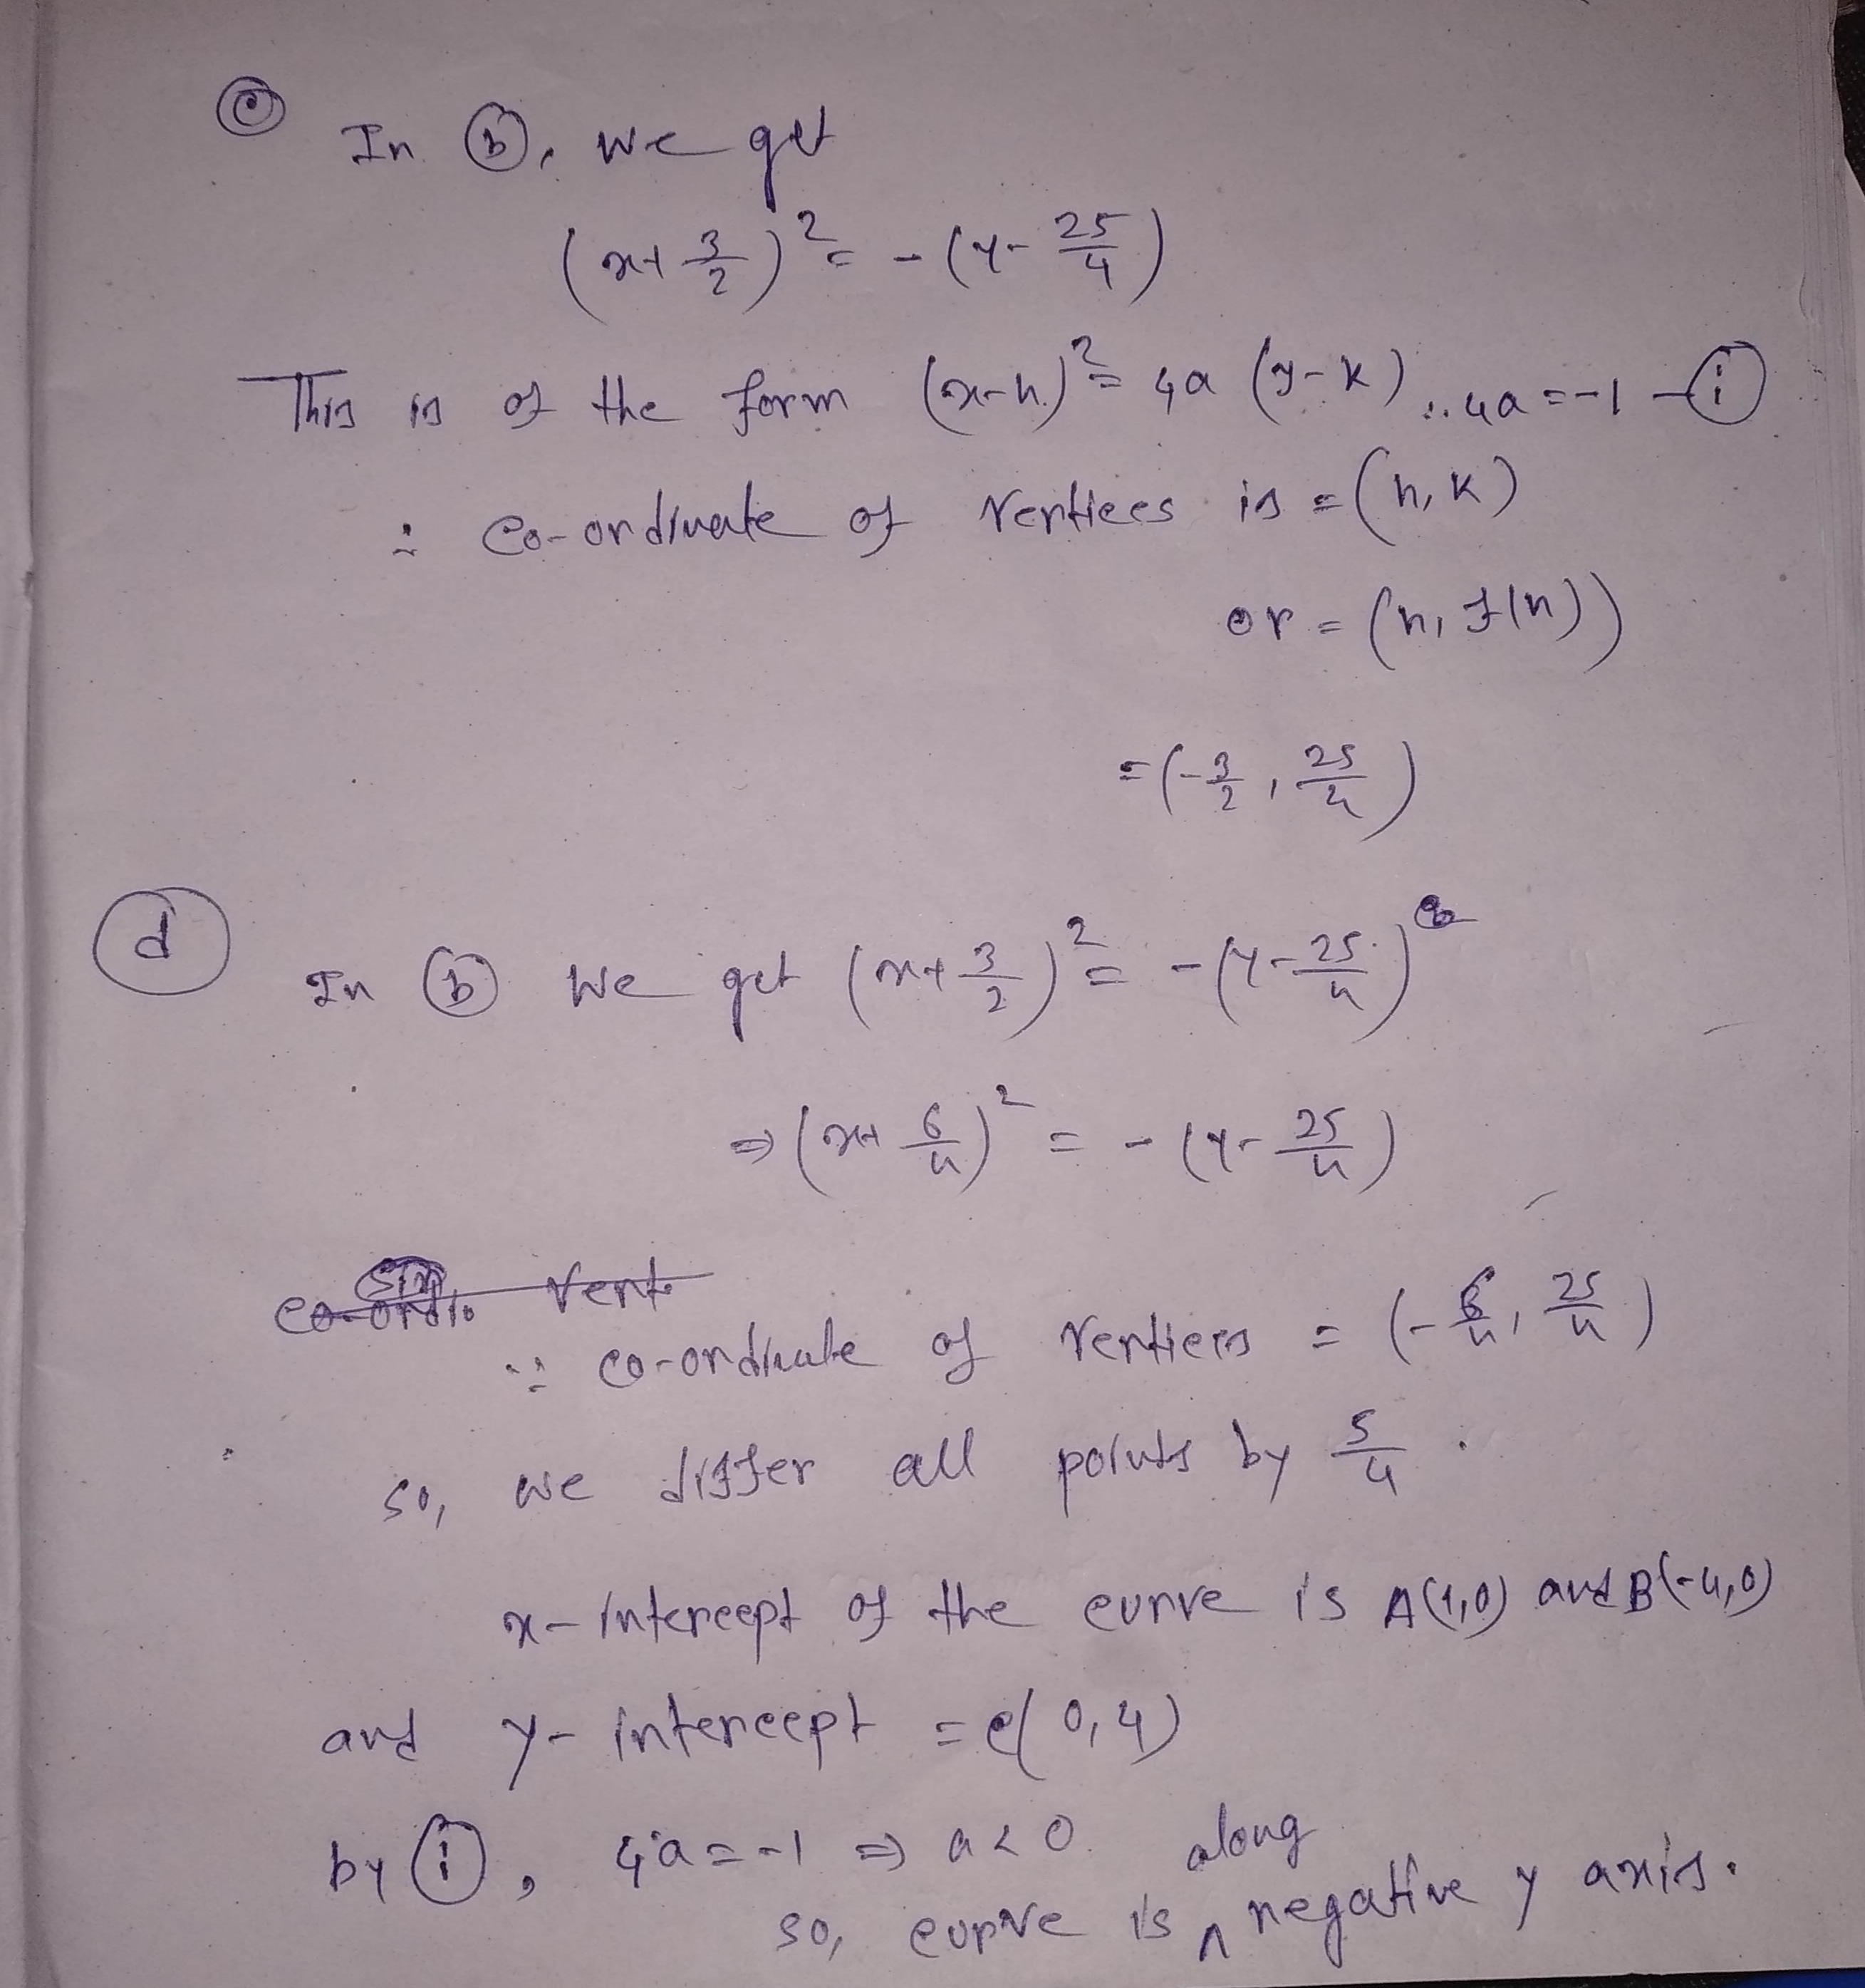 ⓒ In ⓑ, we get
(x+ 3/2)² = -(y- 25/4)
This is of the form (x-h)² = 4a (y-k) ∴ 4a = -1 -ⓘ
∴ Co-ordinate of vertices is = (h, k)
or = (h, f(h))
= (-3/2, 25/4)
ⓓ In ⓑ we get (x+ 3/2)² = -(y- 25/4)
⇒ (x+ 6/4)² = -(y- 25/4)
∴ co-ordinate of vertices = (-6/4, 25/4)
so, we differ all points by 5/4.
x-intercept of the curve is A(1,0) and B(-4,0)
and y-intercept = c(0,4)
by ⓘ, 4a = -1 ⇒ a < 0.
so, curve is along negative y axis.